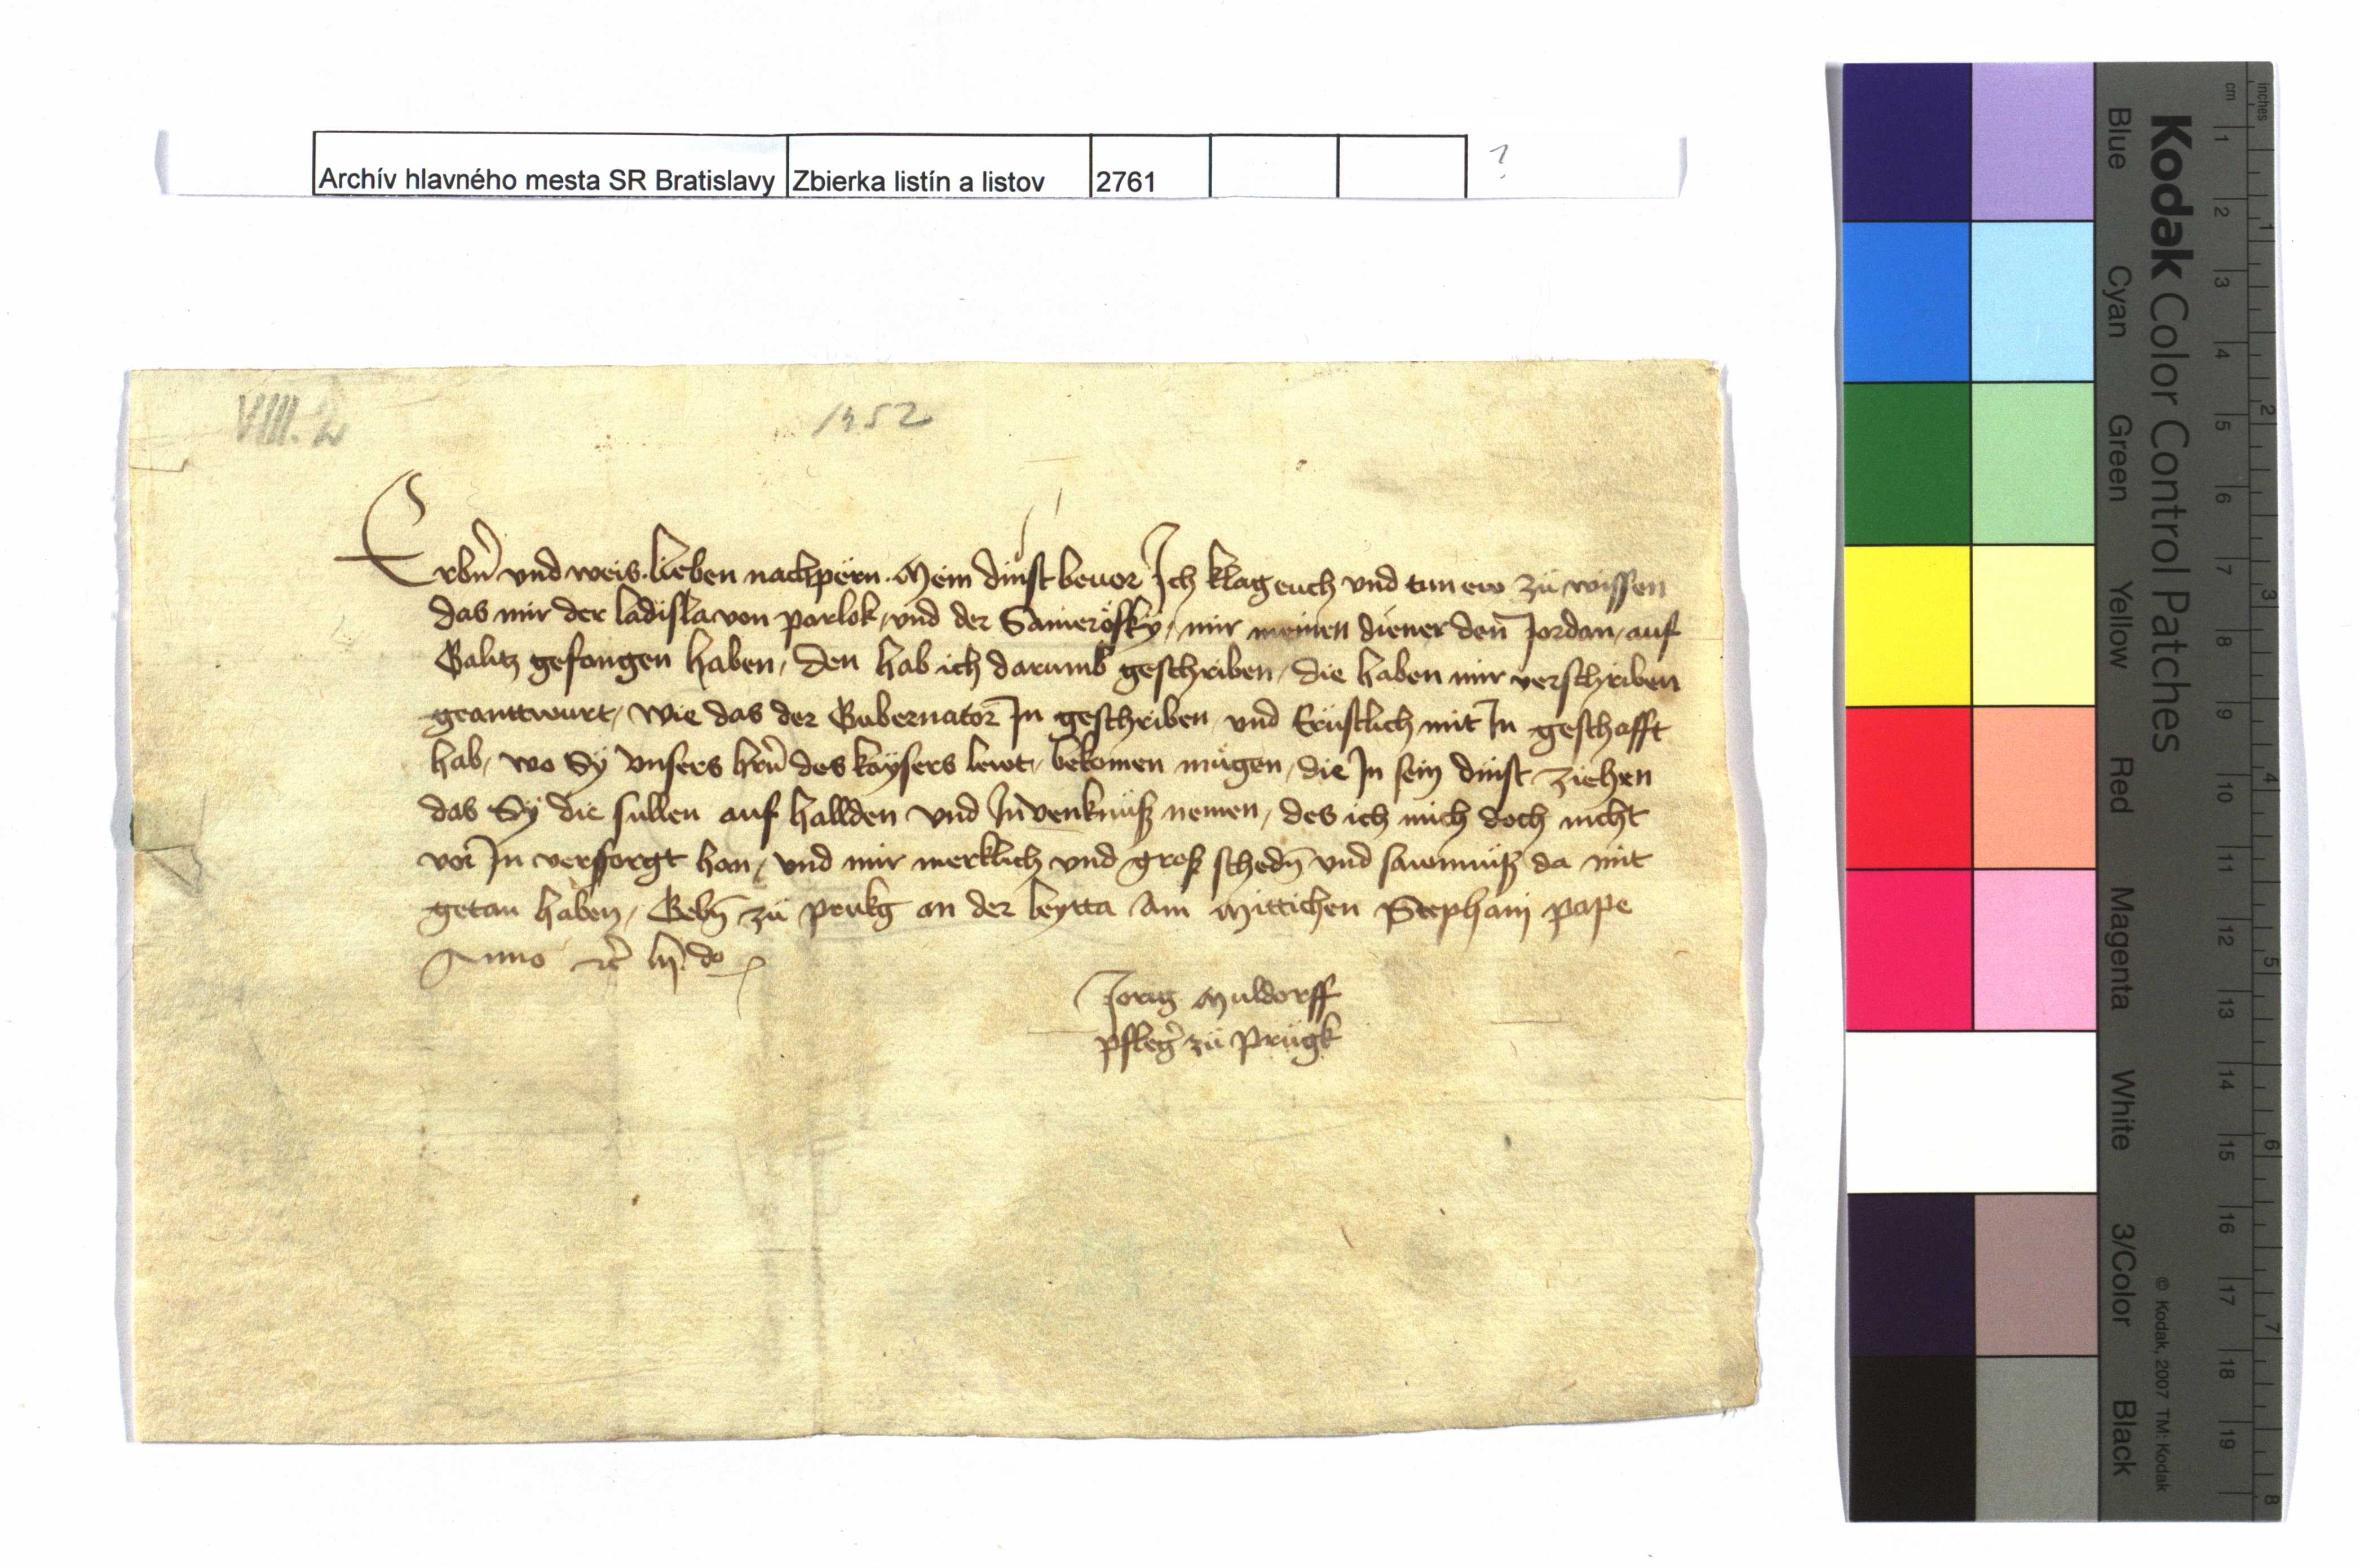 Archív hlavného mesta SR Bratislavy Zbierka listín a listov 2761 ?
VIII. 2
1452
Erbn̄ vnd weis. lieben nachpern. Mein dinst beuor Ich klag euch vnd tun ew zü wissen
das mir der ladisla von parlok, vnd der Samerösky, mir meinen diener den Jordan, auf
Galitz gefangen haben, den hab ich darumb geschriben, die haben mir verschriben
geanttwurt, wie das der Gubernator In geschriben vnd Ernstlich mit In geschafft
hab, wo Sÿ vnsers hrn̄ des kaÿsers lewt, bekomen mügen, die In sein dinst ziehen
das Sÿ die sullen auf hallden vnd In venknüß nemen, des ich mich doch nicht
vor In versorgt han, vnd mir merklich vnd groß schedn̄ vnd sawmnüß da mit
getan haben, Gebn̄ zü prukg an der leytta Am Mittichen Stephani pape
Anno etc̄ lij do
Jorig Muldorff
pfleḡ zü Prügk
Kodak Color Control Patches
Blue Cyan Green Yellow Red Magenta White 3/Color Black
© Kodak, 2007 TM: Kodak
cm 1 2 3 4 5 6 7 8 9 10 11 12 13 14 15 16 17 18 19
inches 1 2 3 4 5 6 7 8